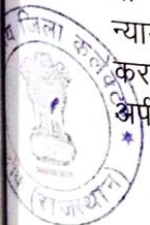 न्या
कर
अपी
जिला कलेक्टर
(राजस्थान)